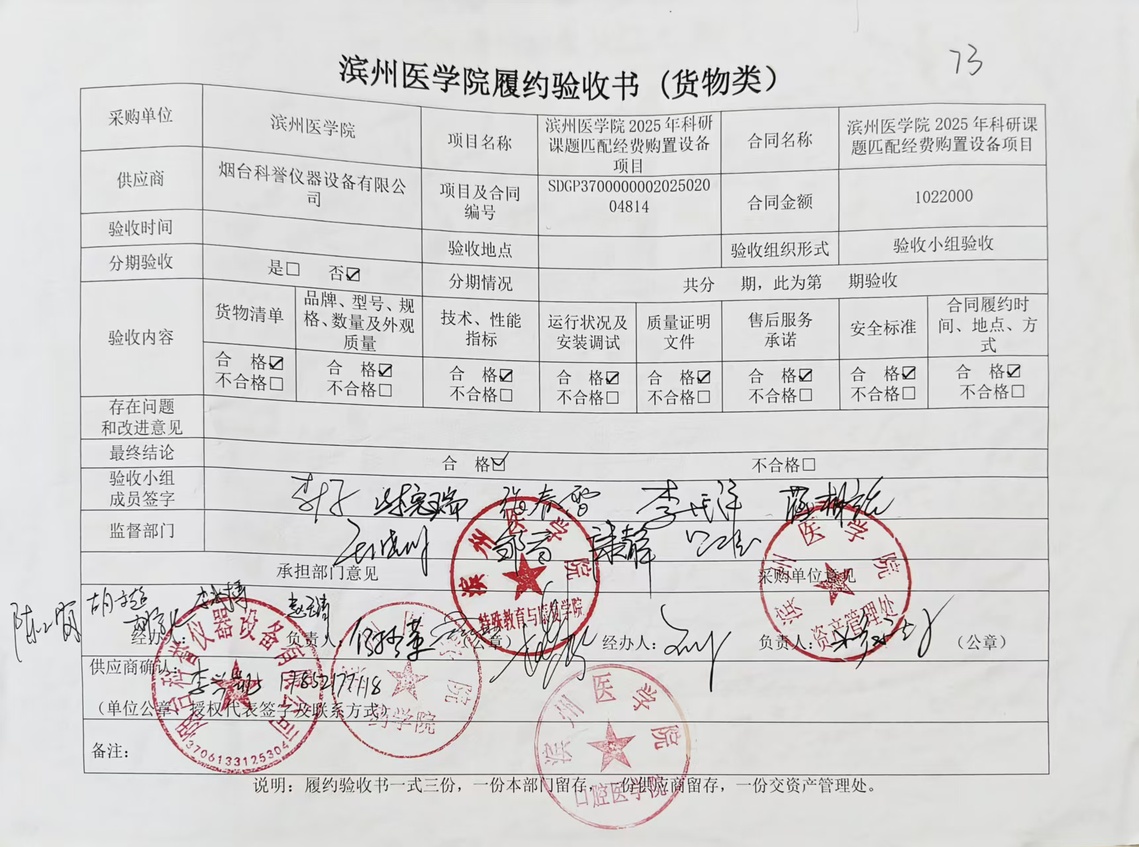 73
滨州医学院履约验收书（货物类）
采购单位
滨州医学院
项目名称
滨州医学院 2025 年科研
课题匹配经费购置设备
项目
合同名称
滨州医学院 2025 年科研课
题匹配经费购置设备项目
供应商
烟台科誉仪器设备有限公
司
项目及合同
编号
SDGP3700000002025020
04814
合同金额
1022000
验收时间
验收地点
验收组织形式
验收小组验收
分期验收
是□ 否☑
分期情况
共分 期，此为第 期验收
验收内容
货物清单
品牌、型号、规
格、数量及外观
质量
技术、性能
指标
运行状况及
安装调试
质量证明
文件
售后服务
承诺
安全标准
合同履约时
间、地点、方
式
合 格☑
不合格□
合 格☑
不合格□
合 格☑
不合格□
合 格☑
不合格□
合 格☑
不合格□
合 格☑
不合格□
合 格☑
不合格□
合 格☑
不合格□
存在问题
和改进意见
最终结论
合 格☑
不合格□
验收小组
成员签字
张春雪
监督部门
承担部门意见
采购单位意见
经办人：
负责人：
（公章）
经办人：
负责人：
（公章）
供应商确认：
（单位公章、授权代表签字及联系方式）
备注：
说明：履约验收书一式三份，一份本部门留存，一份供应商留存，一份交资产管理处。
滨州医学院
特殊教育与康复学院
滨州医学院
资产管理处
烟台科誉仪器设备有限公司
3706133125304
药学院
滨州医学院
口腔医学院